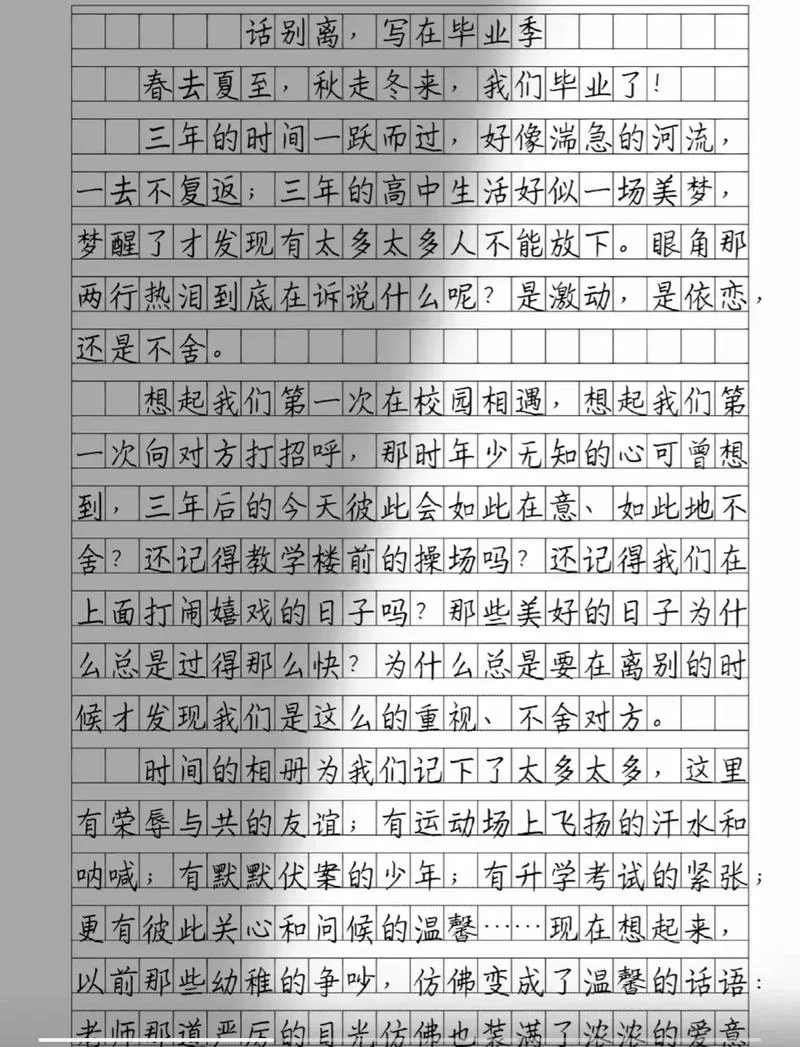 话别离，写在毕业季
春去夏至，秋走冬来，我们毕业了！
三年的时间一跃而过，好像湍急的河流，
一去不复返；三年的高中生活好似一场美梦，
梦醒了才发现有太多太多人不能放下。眼角那
两行热泪到底在诉说什么呢？是激动，是依恋，
还是不舍。
想起我们第一次在校园相遇，想起我们第
一次向对方打招呼，那时年少无知的心可曾想
到，三年后的今天彼此会如此在意、如此地不
舍？还记得教学楼前的操场吗？还记得我们在
上面打闹嬉戏的日子吗？那些美好的日子为什
么总是过得那么快？为什么总是要在离别的时
候才发现我们是这么的重视、不舍对方。
时间的相册为我们记下了太多太多，这里
有荣辱与共的友谊；有运动场上飞扬的汗水和
呐喊；有默默伏案的少年；有升学考试的紧张；
更有彼此关心和问候的温馨……现在想起来，
以前那些幼稚的争吵，仿佛变成了温馨的话语：
老师那道严厉的目光仿佛也装满了浓浓的爱意